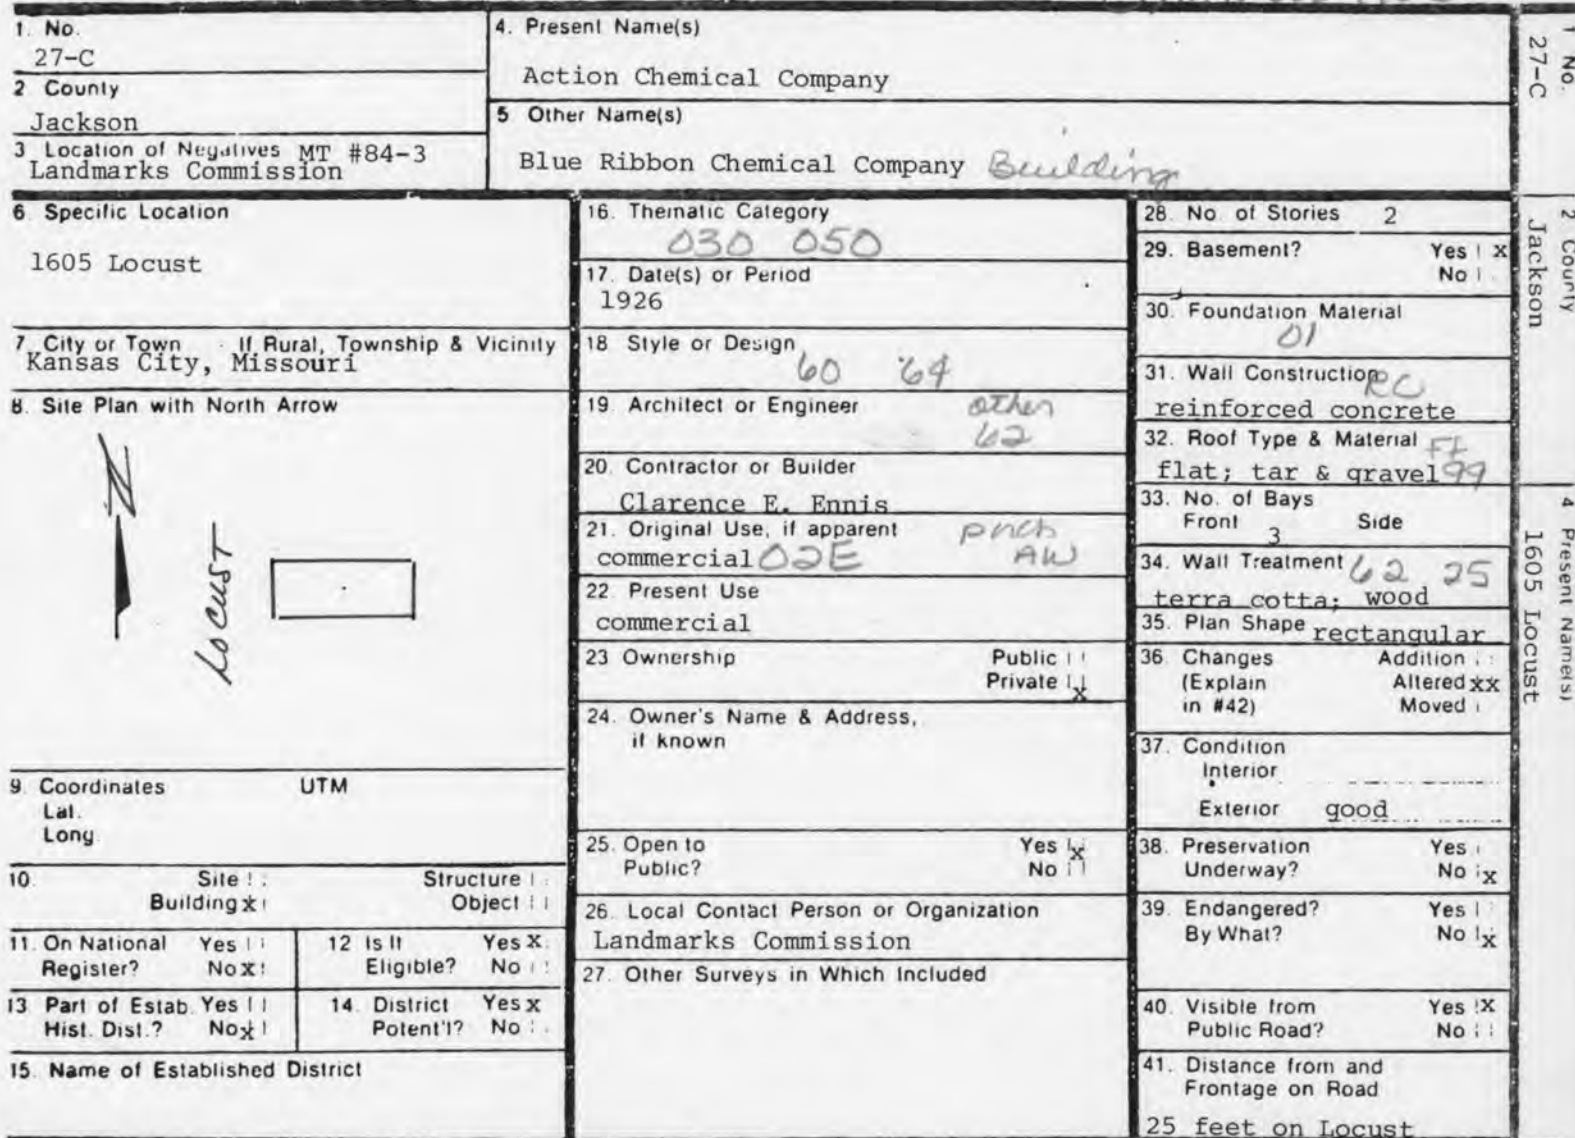 1. No.
27-C
2 County
Jackson
3 Location of Negatives MT #84-3
Landmarks Commission
4. Present Name(s)
Action Chemical Company
5 Other Name(s)
Blue Ribbon Chemical Company Building
6. Specific Location
1605 Locust
7. City or Town If Rural, Township & Vicinity
Kansas City, Missouri
8. Site Plan with North Arrow
N
Locust
9. Coordinates UTM
Lat.
Long.
10. Site Structure
Building x Object
11. On National Yes
Register? No x
12 Is It Yes X
Eligible? No
13 Part of Estab. Yes
Hist. Dist.? No x
14. District Yes X
Potent'l? No
15. Name of Established District
16. Thematic Category
030 050
17. Date(s) or Period
1926
18 Style or Design
60 64
19. Architect or Engineer other
62
20. Contractor or Builder
Clarence E. Ennis
21. Original Use, if apparent
commercial 02E AW
22. Present Use
commercial
23 Ownership Public
Private x
24. Owner's Name & Address,
if known
25. Open to Yes x
Public? No
26. Local Contact Person or Organization
Landmarks Commission
27. Other Surveys in Which Included
28. No. of Stories 2
29. Basement? Yes x
No
30. Foundation Material
01
31. Wall Construction RC
reinforced concrete
32. Roof Type & Material Ft
flat; tar & gravel 99
33. No. of Bays
Front 3 Side
34. Wall Treatment 62 25
terra cotta; wood
35. Plan Shape rectangular
36. Changes Addition
(Explain Altered xx
in #42) Moved
37. Condition
Interior
Exterior good
38. Preservation Yes
Underway? No x
39. Endangered? Yes
By What? No x
40. Visible from Yes X
Public Road? No
41. Distance from and
Frontage on Road
25 feet on Locust
1 No.
27-C
2 County
Jackson
4 Present Name(s)
1605 Locust